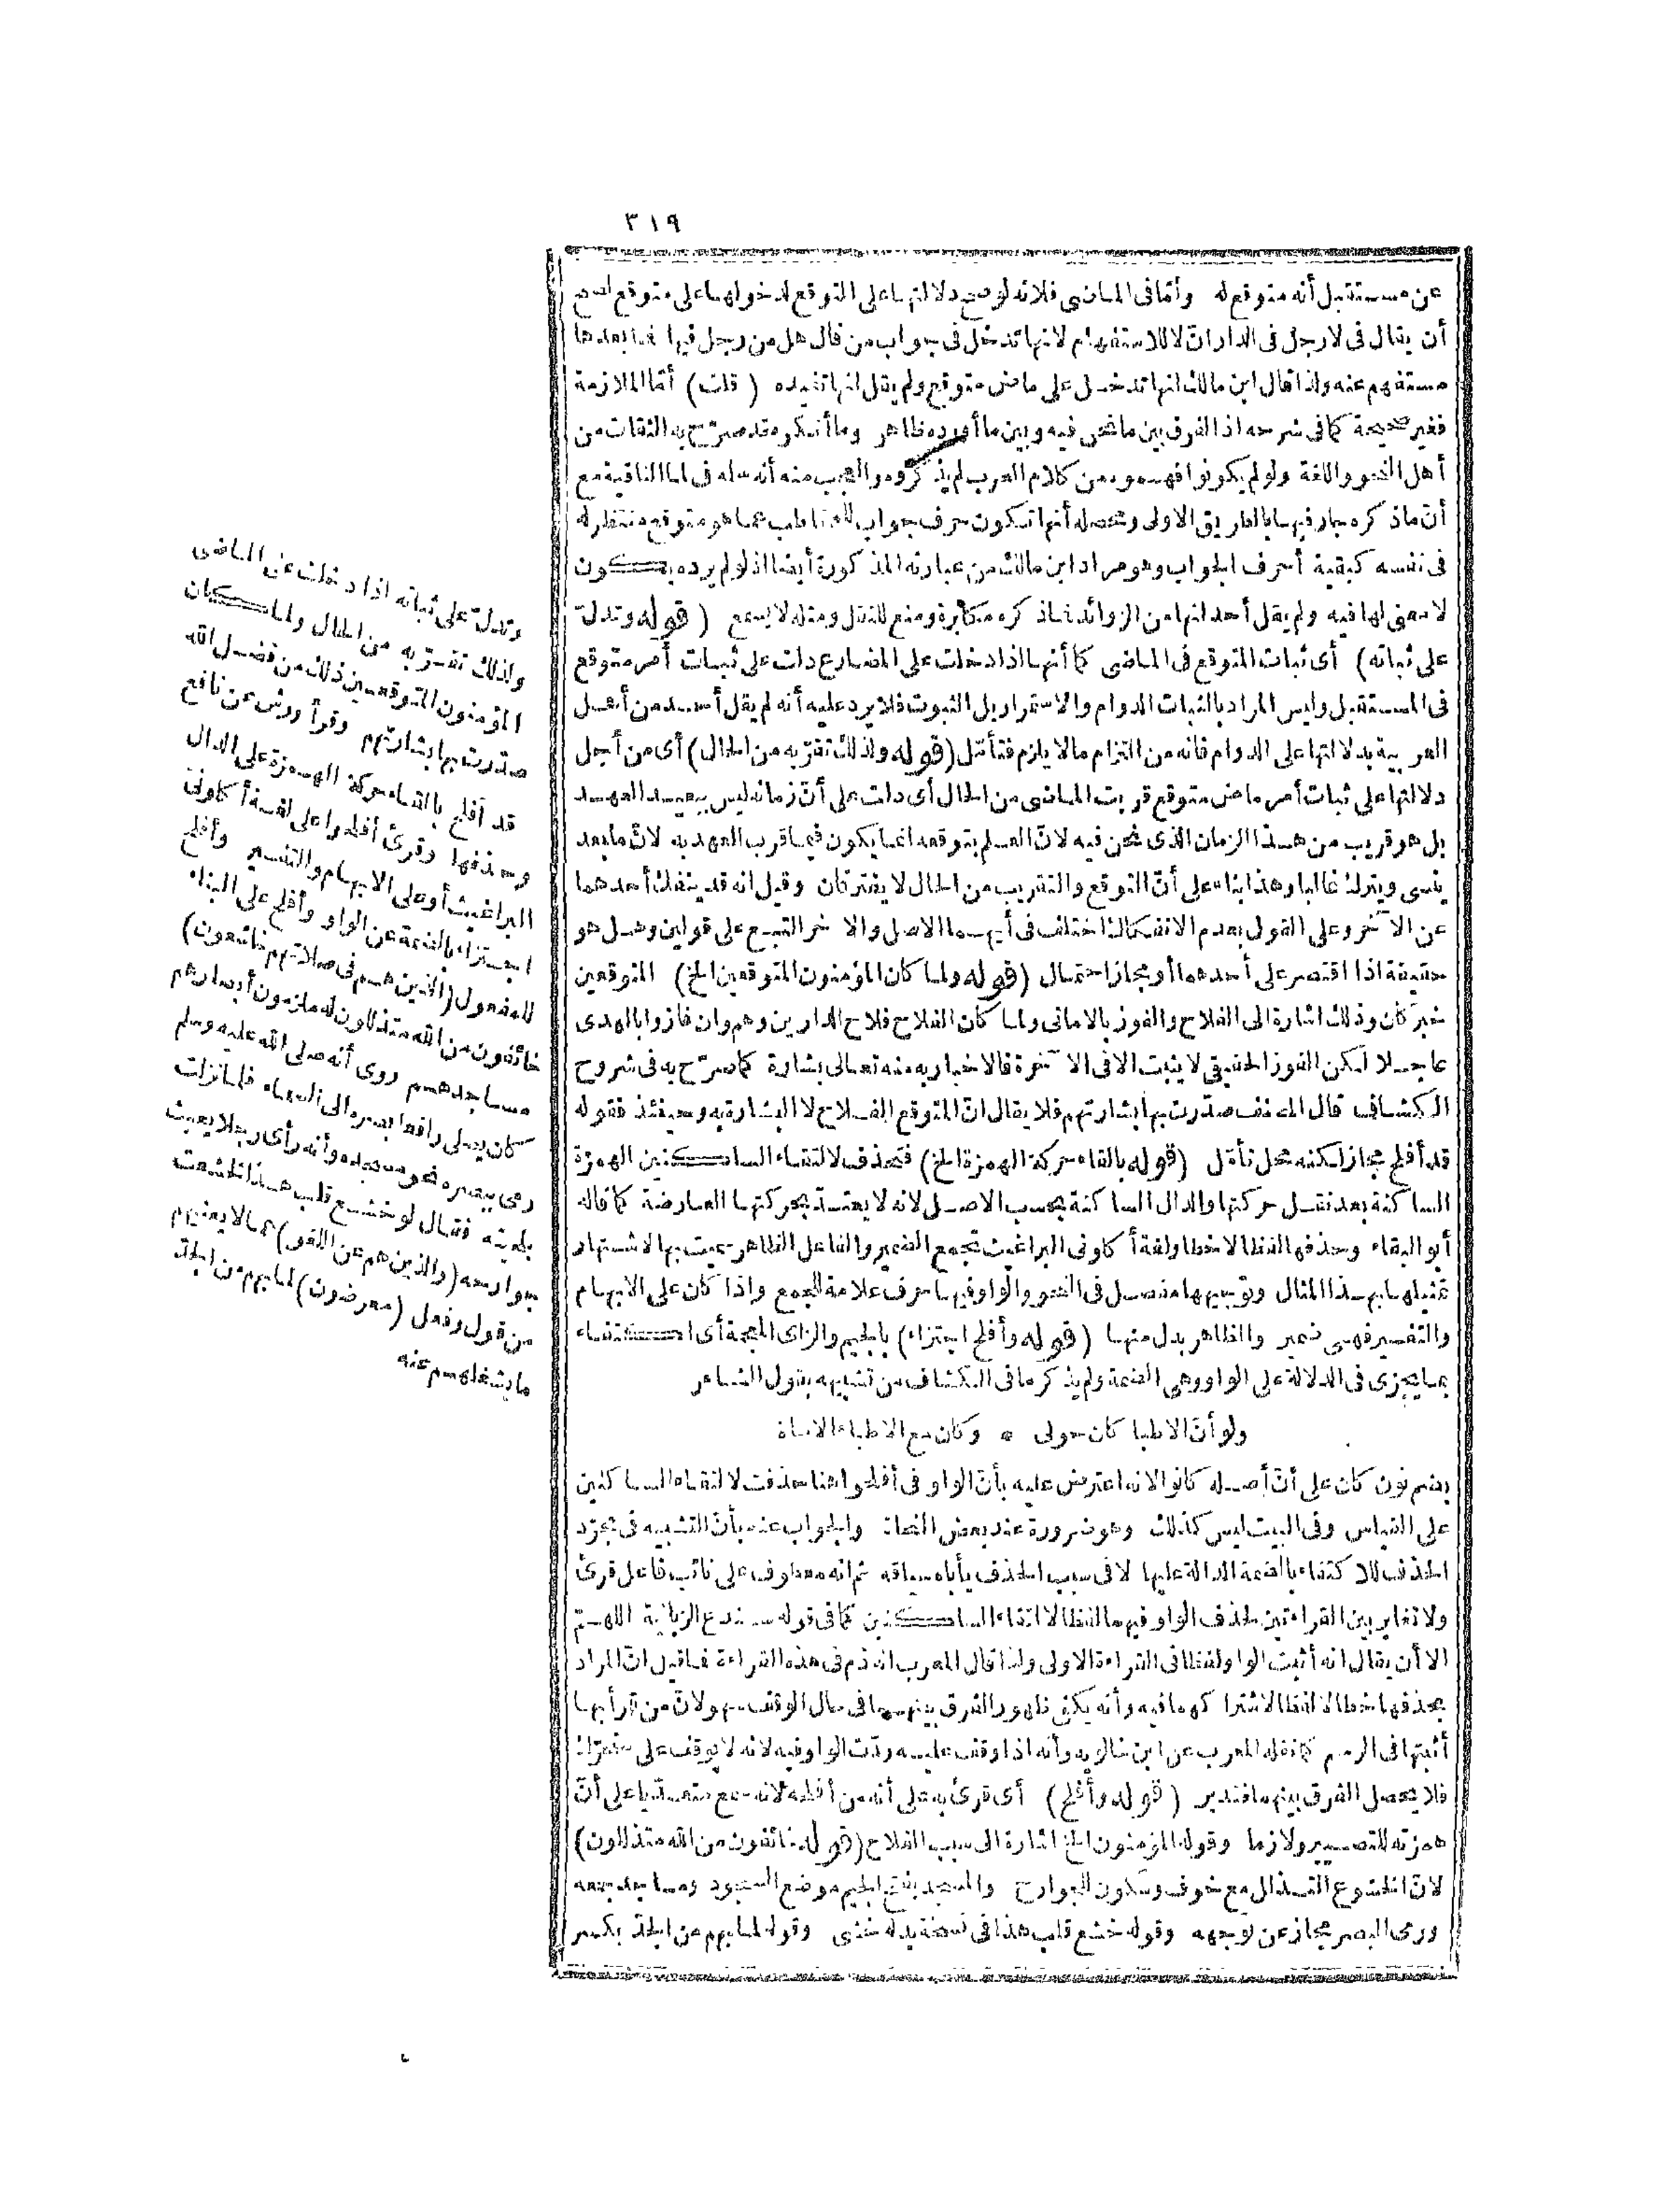 ٣١٩
عن مستقبل أنه متوقع له وأمّا فى الماضى فلانه لو صح دلالتها على التوقع لدخولها على متوقع لصح
أن يقال فى لا رجل فى الدار ان لا للاستفهام لانها تدخل فى جواب من قال هل من رجل فيها فما بعدها
مستفهم عنه ولذا قال ابن مالك انها تدخل على ماض متوقع ولم يقل انها تفيده (قلت) أمّا الملازمة
فغير صحيحة كما فى شرحه اذ الفرق بين ما نحن فيه وبين ما أورده ظاهر وما أنكره قد صرّح به الثقات من
أهل النحو واللغة ولو لم يكونوا فهموه من كلام العرب لم يذكروه والعجب منه أنه سلمه فى لما النافية مع
أنّ ما ذكره جار فيها بالطريق الاولى ومحصله أنها تكون حرف جواب للمخاطب عما هو متوقع منتظر له
فى نفسه كبقية أحرف الجواب وهو مراد ابن مالك من عبارته المذكورة أيضا اذ لو لم يرده يكون
لا معنى لها فيه ولم يقل أحد انها من الزوائد فما ذكره مكابرة ومنع للنقل ومثله لا يسمع (قوله وتدلّ
على ثباته) أى ثبات المتوقع فى الماضى كما أنها اذا دخلت على المضارع دلت على ثبات أمر متوقع
فى المستقبل وليس المراد بالثبات الدوام والاستمرار بل الثبوت فلا يرد عليه أنه لم يقل أحد من أهل
العربية بدلالتها على الدوام فانه من التزام ما لا يلزم فتأمّل (قوله ولذلك تقرّبه من الحال) أى من أجل
دلالتها على ثبات أمر ماض متوقع قربت الماضى من الحال أى دلت على أنّ زمانه ليس ببعيد العهد
بل هو قريب من هذا الزمان الذى نحن فيه لانّ العلم بتوقعه انما يكون فيما قرب العهد به لانّ ما بعد
ينسى ويترك غالبا وهذا بناء على أنّ التوقع والتقريب من الحال لا يفترقان وقيل انه قد ينفك أحدهما
عن الآخر وعلى القول بعدم الانفكاك اختلف فى أيهما الاصل والآخر التبع على قولين وهل هو
حقيقة اذا اقتصر على أحدهما أو مجاز احتمال (قوله ولما كان المؤمنون المتوقعين الخ) المتوقعين
خبر كان وذلك اشارة الى الفلاح والفوز بالامانى ولما كان الفلاح فلاح الدارين وهم وان فازوا بالهدى
عاجلا لكن الفوز الحقيقى لا يثبت الا فى الآخرة فالاخبار به منه تعالى بشارة كما صرّح به فى شروح
الكشاف قال المصنف صدّرت بها بشارتهم فلا يقال انّ المتوقع الفلاح لا البشارة به وحينئذ فقوله
قد أفلح مجاز لكنه محل تأمّل (قوله بالقاء حركة الهمزة الخ) فتحذف لالتقاء الساكنين الهمزة
الساكنة بعد نقل حركتها والدال الساكنة بحسب الاصل لانه لا يعتدّ بحركتها العارضة كما قاله
أبو البقاء وحذفها لفظا لا خطا ولغة أكلونى البراغيث تجمع الضمير والفاعل الظاهر سميت بها لاشتهار
تمثيلها بهذا المثال وتوجيهها مفصل فى النحو والواو فيها حرف علامة للجمع واذا كان على الابهام
والتفسير فهى ضمير والظاهر بدل منها (قوله وأفلح اجتزاء) بالجيم والزاى المعجمة أى اكتفاء
بما يجزى فى الدلالة على الواو وهى الضمة ولم يذكر ما فى الكشاف من تشبيهه بقول الشاعر
ولو أنّ الاطبا كان حولى * وكان مع الاطباء الاساة
بضم نون كان على أنّ أصله كانوا لانه اعترض عليه بأنّ الواو فى أفلحوا هنا حذفت لالتقاء الساكنين
على القياس وفى البيت ليس كذلك وهو ضرورة عند بعض النحاة والجواب عنه بأنّ التشبيه فى مجرّد
الحذف للاكتفاء بالضمة الدالة عليها لا فى سبب الحذف يأباه سياقه ثم انه معطوف على نائب فاعل قرئ
ولا تغاير بين القراءتين لحذف الواو فيهما لفظا لالتقاء الساكنين كما فى قوله سندع الزبانية اللهمّ
الا أن يقال انه أثبت الواو لفظا فى القراءة الاولى ولذا قال المعرب انه ذم فى هذه القراءة فما قيل انّ المراد
بحذفها خطا لا لفظا لاشتراكهما فيه وأنه يكفى ظهور الفرق بينهما فى حال الوقف سهو لانّ من قرأ بها
أثبتها فى الرسم كما نقله المعرب عن ابن خالويه وأنه اذا وقف عليه ردّت الواو فيه لانه لا يوقف على متحرّك
فلا يحصل الفرق بينهما فتدبر (قوله وأفلح) أى قرئ به على أنه من أفلحه لانه سمع متعدّيا على أنّ
همزته للتصيير ولازما وقوله المؤمنون الخ اشارة الى سبب الفلاح (قوله خائفون من الله متذللون)
لانّ الخشوع التذلل مع خوف وسكون للجوارح والمسجد بفتح الجيم موضع السجود ومساجد جمعه
ورمى البصر مجاز عن توجهه وقوله خشع قلب هذا فى نسخة بدله خشى وقوله لما بهم من الجدّ بكسر
وتدلّ على ثباته اذا دخلت على الماضى
ولذلك تقرّبه من الحال ولما كان
المؤمنون المتوقعين ذلك من فضل الله
صدّرت بها بشارتهم وقرأ ورش عن نافع
قد أفلح بالقاء حركة الهمزة على الدال
وحذفها وقرئ أفلحوا على لغة أكلونى
البراغيث أو على الابهام والتفسير وأفلح
اجتزاء بالضمة عن الواو وأفلح على البناء
للمفعول (الذين هم فى صلاتهم خاشعون)
خائفون من الله متذللون له ملزمون أبصارهم
مساجدهم روى أنه صلى الله عليه وسلم
كان يصلى رافعا بصره الى السماء فلما نزلت
رمى ببصره نحو مسجده وأنه رأى رجلا يعبث
بلحيته فقال لو خشع قلب هذا لخشعت
جوارحه (والذين هم عن اللغو) عما لا يعنيهم
من قول وفعل (معرضون) لما بهم من الجدّ
ما يشغلهم عنه